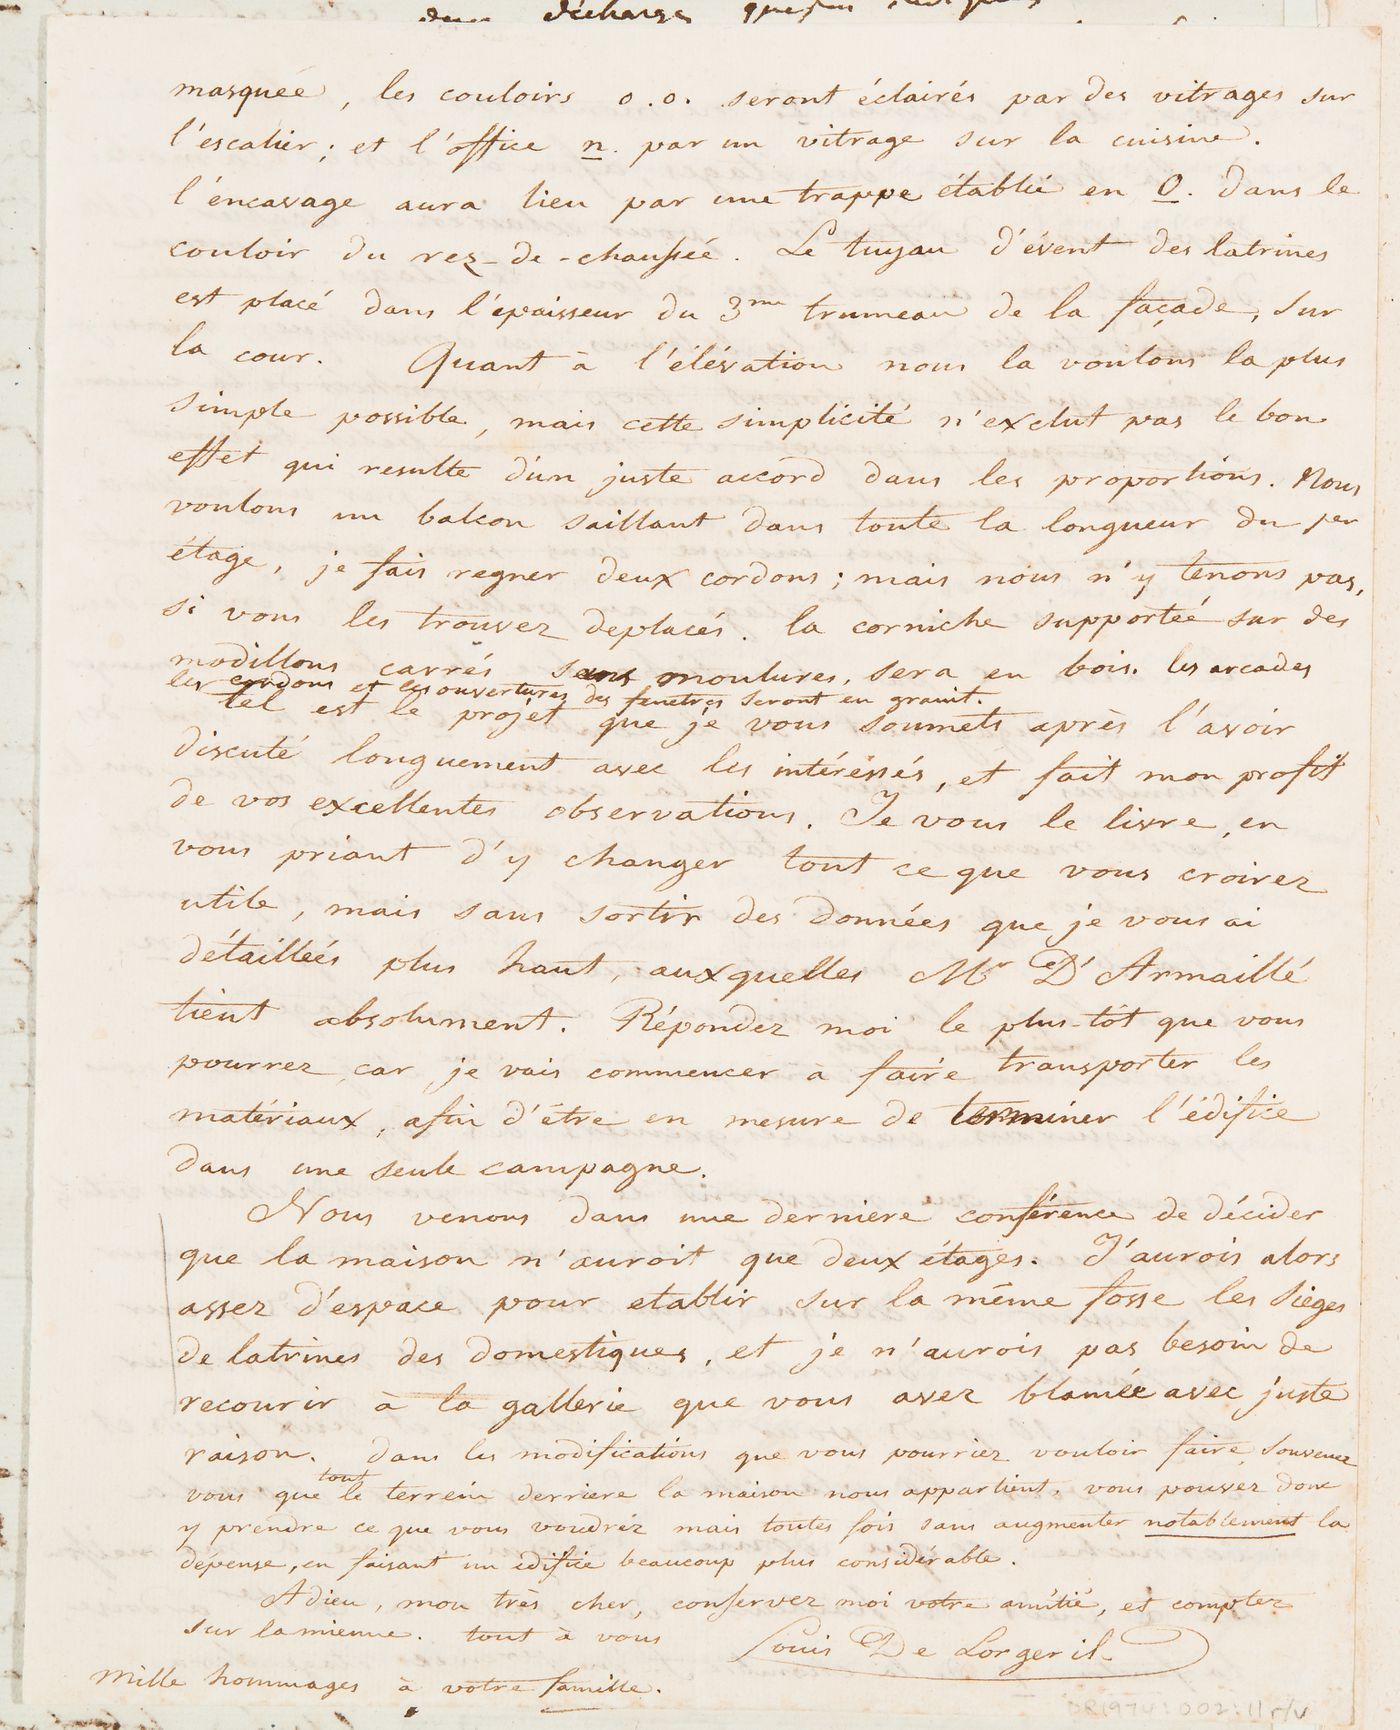 masqueé, les couloirs o.o. seront éclairés par des vitrages sur
l'escalier; et l'office n. par un vitrage sur la cuisine.
l'éncavage aura lieu par une trappe établie en O. dans le
couloir du rez-de-chausseé. Le tuyau d'évent des latrines
est placé dans l'épaisseur du 3me trumeau de la façade, sur
la cour. Quant à l'élévation nous la voulons la plus
simple possible, mais cette simplicité n'exclut pas le bon
effet qui resulte d'un juste accord dans les proportions. Nous
voulons un balcon saillant dans toute la longueur du per
étage, je fais regner deux cordons; mais nous n'y tenons pas,
si vous les trouvez deplacés. la corniche supporteé sur des
modillons carrés sans moulures, sera en bois. les arcades
les cordons et les ouvertures des fenetres seront en granit.
tel est le projet que je vous soumets après l'avoir
discuté longuement avec les intéréssés, et fait mon profit
de vos excellentes observations. Je vous le livre, en
vous priant d'y changer tout ce que vous croirez
utile, mais sans sortir des données que je vous ai
détailleés plus haut, auxquelles Mr D'Armaillé
tient absolument. Répondez moi le plus-tôt que vous
pourrez, car je vais commencer à faire transporter les
matériaux, afin d'être en mesure de terminer l'édifice
dans une seule campagne.
Nous venons dans une derniere conférence de décider
que la maison n'auroit que deux étages. J'aurois alors
assez d'espace pour etablir sur la même fosse les sieges
de latrines des domestiques, et je n'aurois pas besoin de
recourir à la gallerie que vous avez blameé avec juste
raison. dans les modifications que vous pourriez vouloir faire, souvenez
tout
vous que le terrein derriere la maison nous appartient. vous pouvez donc
y prendre ce que vous voudrez mais toutes fois sans augmenter notablement la
dépense, en faisant un édifice beaucoup plus considérable.
Adieu, mon très cher, conservez moi votre amitié, et comptez
sur la mienne. tout à vous Louis De Lorgeril
Mille hommages à votre famille.
DR1974:002:11r/v